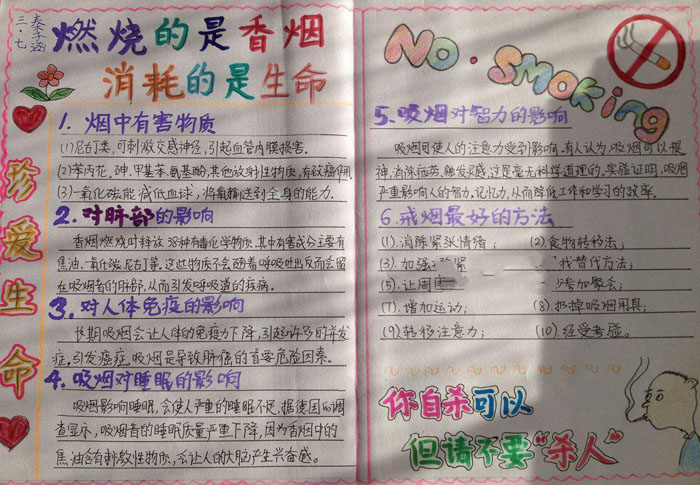 三·七
秦李涵
燃烧的是香烟
消耗的是生命
珍爱生命
1. 烟中有害物质
(1)尼古丁类,可刺激交感神经,引起血管内膜损害。
(2)苯丙芘,砷,甲基苯,氨基酚,其他放射性物质,有致癌作用
(3)一氧化碳能减低血球,将氧输送到全身的能力。
2. 对肺部的影响
香烟燃烧时释放38种有毒化学物质,其中有害成分主要有
焦油、一氧化碳、尼古丁等。这些物质不会随着呼吸吐出反而会留
在吸烟者的肺部,从而引发呼吸道的疾病。
3. 对人体免疫的影响
长期吸烟会让人体的免疫力下降,引起许多的并发
症,引发癌症,吸烟是导致肺癌的首要危险因素。
4. 吸烟对睡眠的影响
吸烟影响睡眠,会使人严重的睡眠不足,据德国的调
查显示,吸烟者的睡眠质量严重下降,因为香烟中的
焦油含有刺激性物质,会让人的大脑产生兴奋感。
NO·SMOKing
5、吸烟对智力的影响
吸烟可使人的注意力受到影响,有人认为,吸烟可以提
神、消除疲劳、触发灵感,这是毫无科学道理的。实验证明,吸烟
严重影响人的智力、记忆力,从而降低工作和学习的效率。
6. 戒烟最好的方法
(1).消除紧张情绪; (2).食物转移法;
(3).加强 找替代方法;
(5).让周围 参加聚会;
(7).增加运动; (8).扔掉吸烟用具;
(9).转移注意力; (10).经受考验。
你自杀可以
但请不要“杀人”